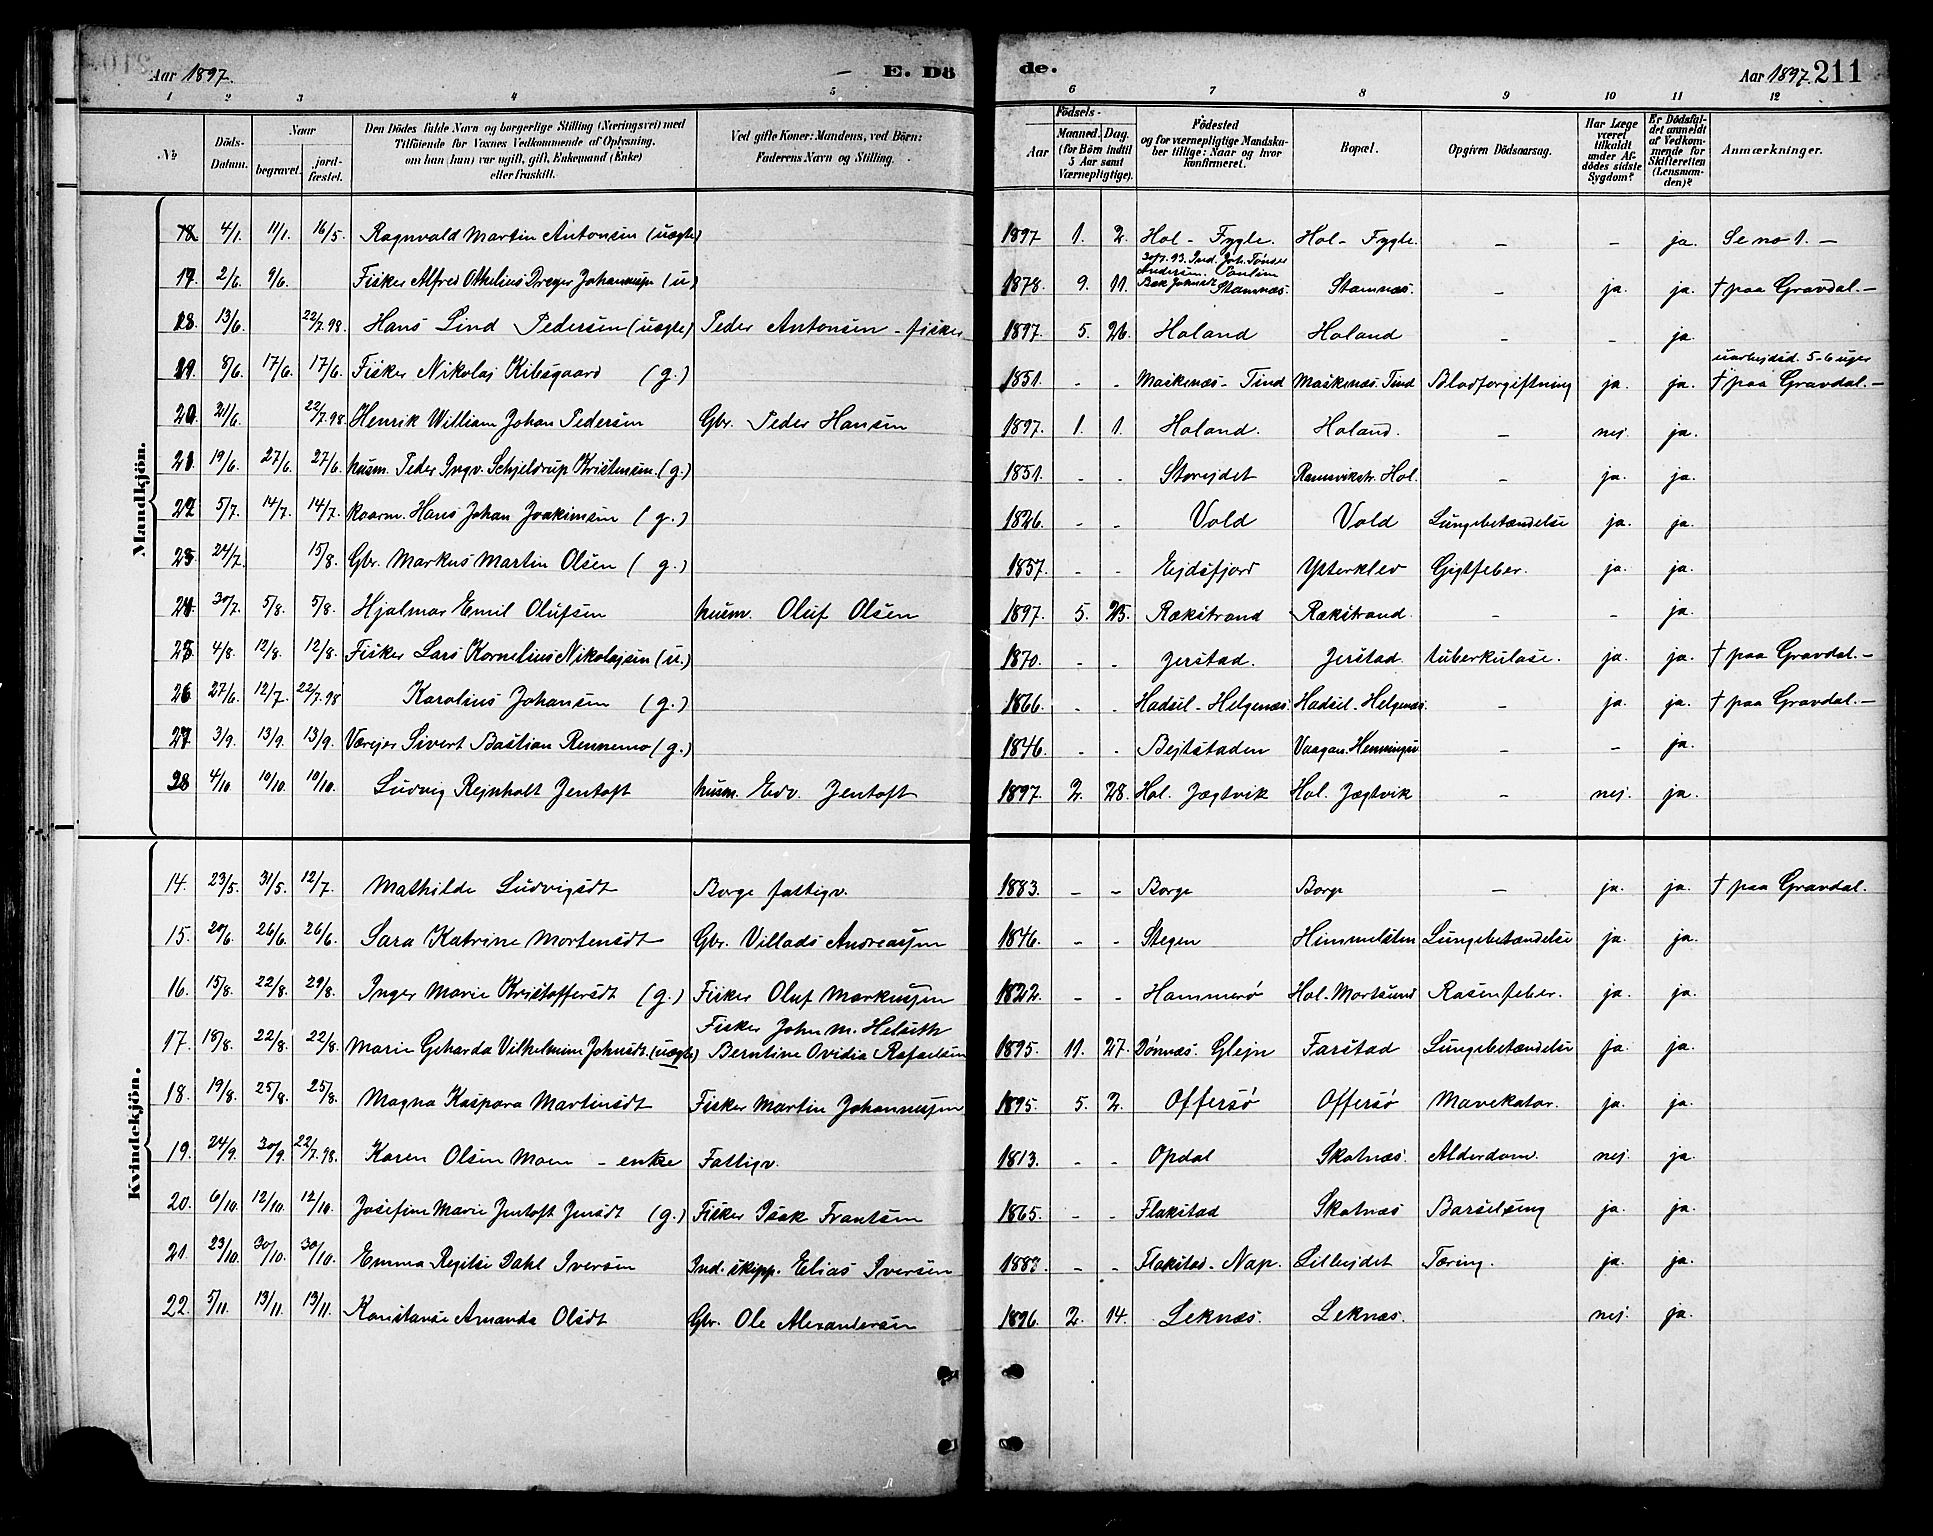 Aar 1897.
E. Dö
de.
Aar 1897. 211
1 2 3 4 5 6 7 8 9 10 11 12
No
Döds-Datum.
Naar
begravet.
jordfæstet.
Den Dödes fulde Navn og borgerlige Stilling (Næringsvei) med Tilföiende for Voxnes Vedkommende af Oplysning, om han (hun) var ugift, gift, Enkemand (Enke) eller fraskilt.
Ved gifte Koner: Mandens, ved Börn: Faderens Navn og Stilling.
Födsels-
Aar
Maaned. Dag.
(for Börn indtil 5 Aar samt Værnepligtige).
Födested og for værnepligtige Mandskaber tillige: Naar og hvor konfirmeret.
Bopæl.
Opgiven Dödsaarsag.
Har Læge været tilkaldt under Afdödes sidste Sygdom?
Er Dödsfaldet anmeldt af Vedkommende for Skifteretten (Lensmanden)?
Anmærkninger.
Mandkjön.
18 4/1. 11/1. 16/5. Ragnvald Martin Antonsen (uægte) 1897 1. 2. Hol - Fygle. Hol - Fygle. - - ja. Se no 1. -
17. 2/6. 9/6. Fisker Alfred Othelius Dreyer Johannesen (u) 1878. 9. 11. Stamnæs. Stamnæs. - ja. ja. † paa Gravdal. -
18. 13/6. 22/7.98. Hans Lind Pedersen (uægte) Peder Antonsen - fisker 1897. 5. 26. Holand Holand - - ja.
19. 8/6. 17/6. 17/6. Fisker Nikolaj Kibsgaard (g.) 1851. - - Maskenæs - Tind Maskenæs. Tind Blodforgiftning ja. ja. uarbejdsd. 5-6 uger † paa Gravdal. -
20. 21/6. 22/7.98. Henrik William Johan Pedersen Gbr. Peder Hansen 1897. 1. 1. Holand. Holand. - nej. ja.
21. 19/6. 27/6. 27/6. husm. Peder Ingv. Schjeldrup Kristensen. (g.) 1851. - - Storejdet Ramsvikstr. Hol. - ja. ja.
22. 5/7. 14/7. 14/7. kaarm. Hans Johan Joakimsen (g.) 1826. - - Vold Vold Lungebetændelse ja. ja.
23. 24/7. 15/8. Gbr. Markus Martin Olsen (g.) 1857. - - Ejdsfjord Ytterklev Gigtfeber. ja. ja.
24. 30/7. 5/8. 5/8. Hjalmar Emil Olufsen husm. Oluf Olsen 1897. 5. 25. Rækstrand Rækstrand. - - ja.
25. 4/8. 12/8. 12/8. Fisker Lars Kornelius Nikolajsen (u.) 1870. - - Jerstad. Jerstad. tuberkulose. ja. ja. † paa Gravdal. -
26. 27/6. 12/7. 22/7.98 Karolius Johansen (g.) 1866. - - Hadsel - Helgenæs. Hadsel - Helgenæs. - ja. ja. † paa Gravdal. -
27. 3/9. 13/9. 13/9. Værejer Sivert Bastian Rennemo (g.) 1846. - - Bejtstaden Vaagan. - - ja.
28 4/10. 10/10. 10/10. Ludvig Rejnholt Jentoft husm. Edv. Jentoft 1897. 2. 28. Hol. Jægtvik Hol. Jægtvik - nej. ja.
Kvindekjön.
14. 23/5. 31/5. 12/7. Mathilde Ludvigsdt Borge fattigv. 1883. - - Borge Borge - ja. ja. † paa Gravdal.
15. 20/6. 26/6. 26/6. Sara Katrine Mortensdt Gbr. Villads Andreassen 1846. - - Stegen Himmelsten Lungebetændelse ja. ja.
16. 15/8. 22/8. 29/8. Inger Marie Kristoffersdt (g.) Fisker Oluf Markussen 1822. - - Hammerø Hol. Mortsund Rosenfeber. ja. ja.
17. 18/8. 22/8. 22/8. Marie Geharda Vilhelmine Johnsdt. (uægte) Fisker John M. Helseth Berntine Ovidia Rafaelsen 1895. 11. 27. Dønnæs. Glejn Farstad Lungebetændelse ja. ja.
18. 19/8. 25/8. 25/8. Magna Kaspara Martinsdt Fisker Martin Johannessen 1895. 5. 2. Offersø Offersø Mavekatar. ja. ja.
19. 24/9. 30/9. 22/7.98. Karen Olsen Moen - enke Fattigv. 1813. - - Opdal Skotnæs. Alderdom. nej. ja.
20. 6/10. 12/10. 12/10. Josefine Marie Jentoft Jensdt (g.) Fisker Isak Frantsen 1865. - - Flakstad Skotnæs Barselseng ja. ja.
21. 23/10. 30/10. 30/10. Emma Regitse Dahl Iversen Ind. skipp. Elias Iversen 1882. - - Flakstad - Nap. Lillejdet Tæring. ja. ja.
22. 5/11. 13/11. 13/11. Konstanse Amanda Olsdt Gbr. Ole Alexandersen 1896. 2. 14. Leknæs. Leknæs. nej. ja.